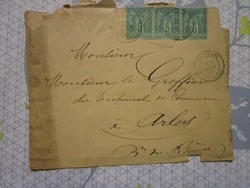 Monsieur
Monsieur le Greffier
du Tribunal de Commerce
à Arles
Bes du Rhône